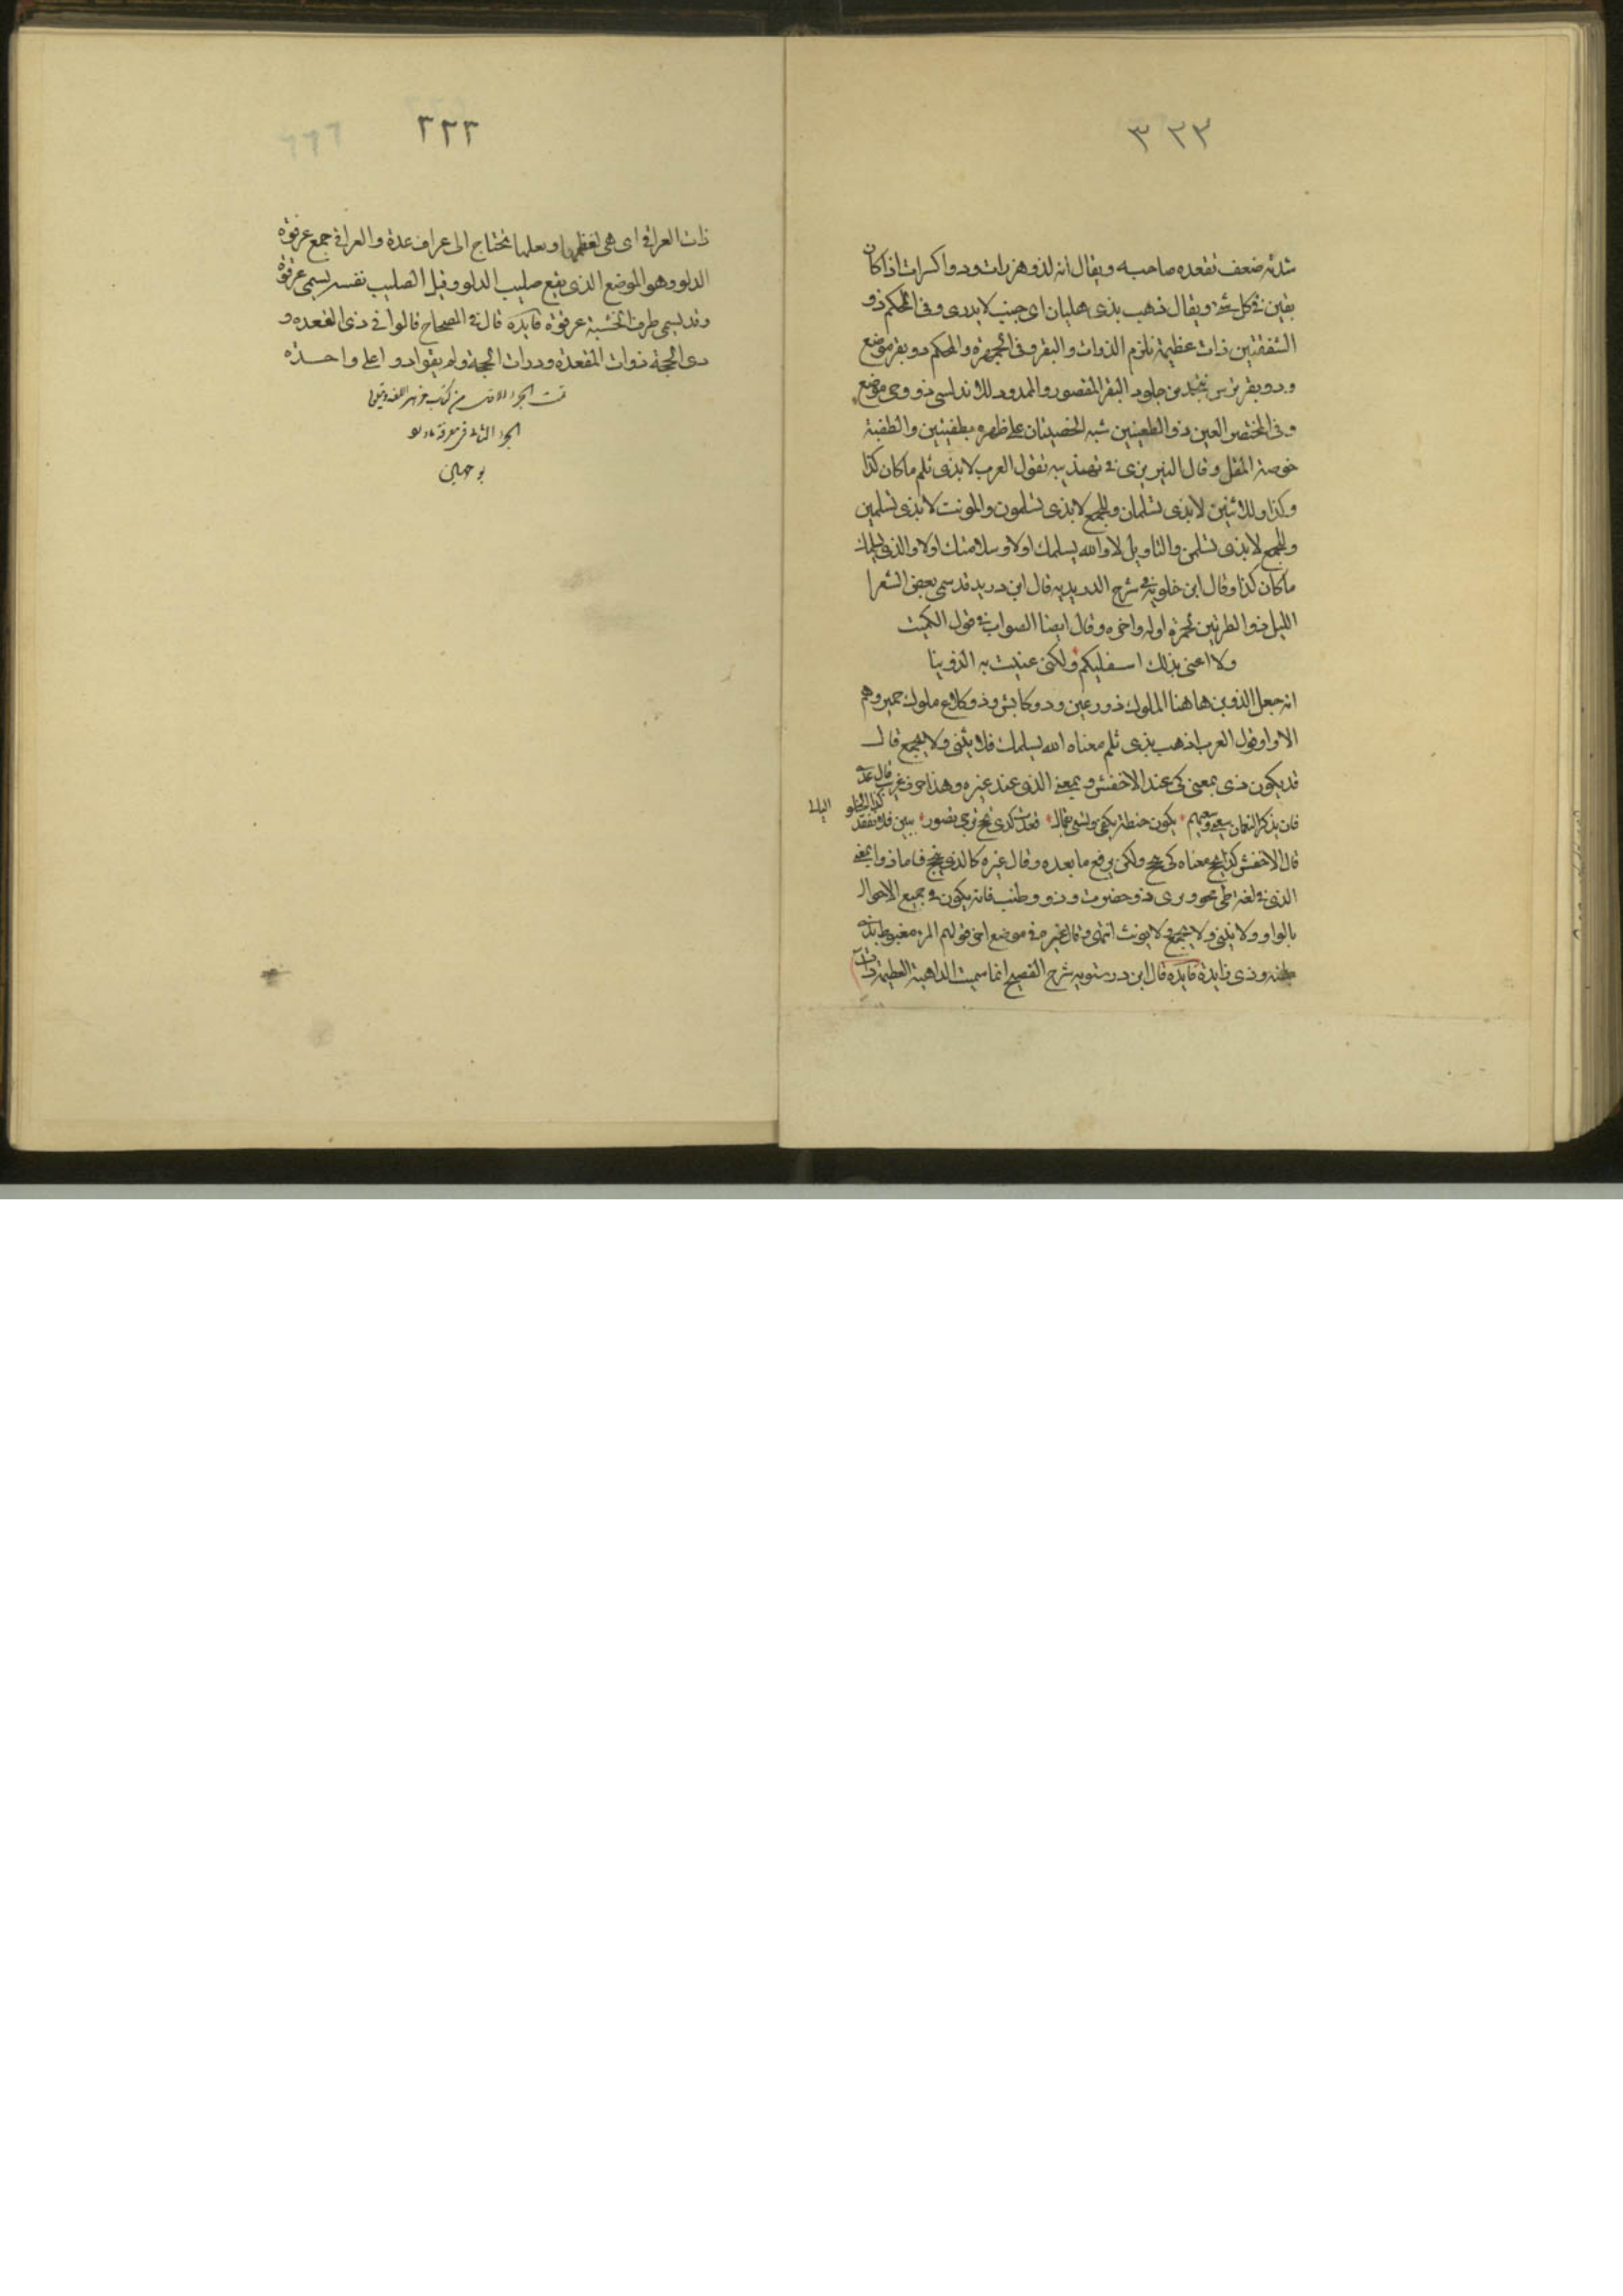 ٣٢٣
شدته ضعف تقعده صاحبه ويقال انه لذو هزرات وذوا كسرات اذا كان
يغبن في كل شي ويقال ذهب بذى هليان اى حيث لا يدرى وفى المحكم ذو
الشفقتين ذات عظيمة تلزم الذوات والبقر وفى الجمهرة والمحكم ذو بقر موضع
وذو بقر ترس يتخذ من جلود البقر المقصور والممدود للاندلسى ذو وحى موضع
وفى المختصر العين ذو الطفيتين شبه الخصيتان على ظهره بطفيتين والطفية
خوصة المقل وقال التبريزى فى تهذيبه تقول العرب لا بذى تسلم ما كان كذا
وكذا وللاثنين لا بذى تسلمان وللجمع لا بذى تسلمون والمونث لا بذى تسلمين
وللجمع لا بذى تسلمن والتاويل لا والله يسلمك اولا وسلامتك اولا والذى يسلمك
ما كان كذا وقال ابن خلويه فى شرح الدريديه قال ابن دريد قد سمى بعض الشعرا
الليل ذو الطرتين لحمرة اوله واخره وقال ايضا الصواب فى قول الكميت
ولا اعنى بذلك اسفليكم ولكنى عنيت به الذوينا
انه جعل الذوين هاهنا الملوك ذورعين وذوكايش وذوكلاع ملوك حمير وهم
الاوا وقول العرب اذهب بذى تسلم معناه الله يسلمك فلا يثنى ولا يجمع قال
قد يكون ذى بمعنى كى عند الاخفش وبمعنى الذى عند غيره وهذا حرف غريب قال عدى
فان يذكر النعمان سعيى وسعيهم يكون خطة يكفى ويسعى بعمال فعدت كذى نجح يرجى بصور يبين فلا تفقد كذا الخلو البالى
قال الاخفش كذى نجح معناه كى نجح ولكن يرفع ما بعده وقال غيره كالذى ينجح فاما ذوا بمعنى
الذى فى لغة طى نحو وبرى ذو حضرمت وذو وطنب فانه يكون فى جميع الاحوال
بالواو ولا يثنى ولا يجمع ولا يونث انتهى وقال غيره فى موضع اخر قولهم المرء مغبوط بذى
بطنه وذى زايدة فايده قال ابن درستويه شرح الفصيح انما سميت الداهية العظيمة ذات
٣٢٢
ذات العراقى اى هى لعظمها وبعلها تحتاج الى عراف عدة والعراقى جمع عرقوة
الدلو وهو الموضع الذى يقع صليب الدلو وقيل الصليب نفسه يسمى عرقوة
وقد يسمى طرف الخشبة عرقوة فايده قال فى الصحاح قالوا فى ذى القعده و
ذى الحجة ذوات القعده وذوات الحجة ولم يقوا ذو اعلى واحده
تمت الجز الاول من كتاب مزهر اللغة ويتلوها
الجز الثانى فى معرفة